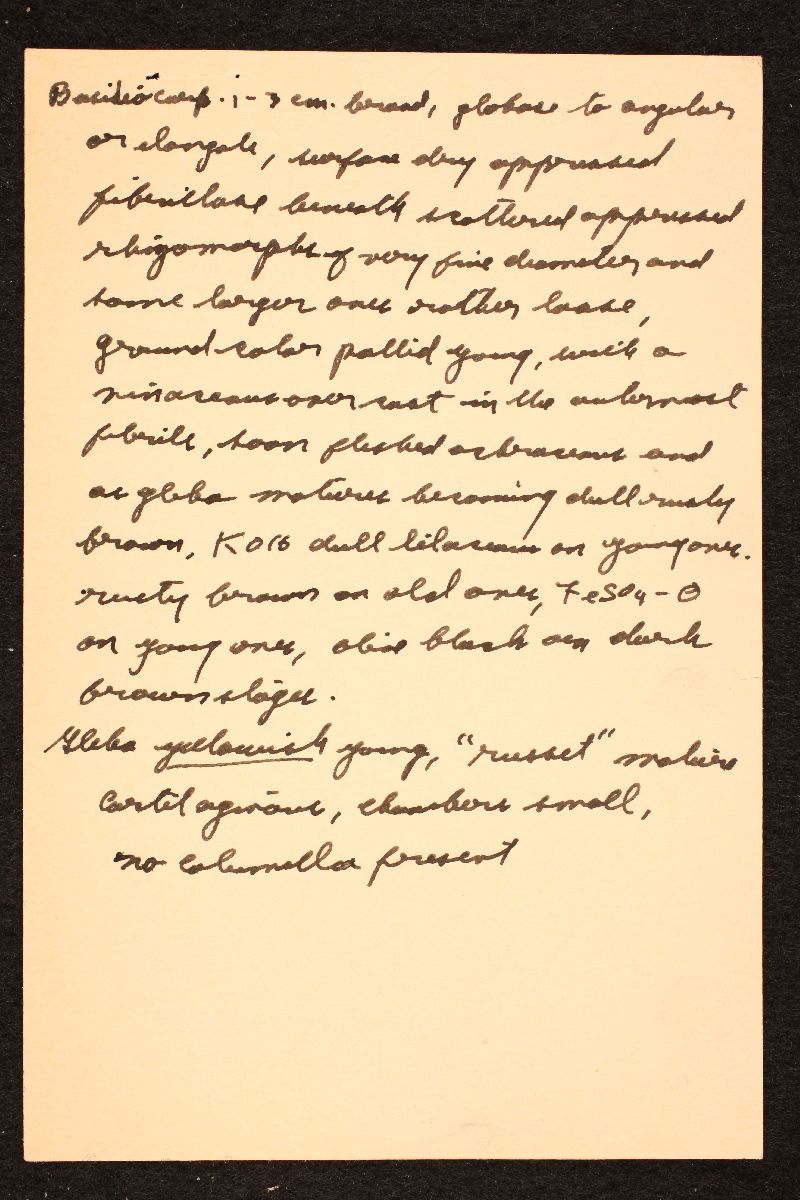 Basidiocarp 1-3 cm. broad, globose to angular
or elongate, surface dry appressed
fibrillose beneath scattered appressed
rhizomorphs of very fine diameter and
some larger ones rather loose,
ground color pallid young, with a
vinaceous over cast in the outermost
fibrils, soon flushed ochraceous and
as gleba matures becoming dull rusty
brown, KOH dull lilaceous on young ones.
rusty brown on old ones, FeSO4 - O
on young ones, olive black on dark
brown stages.
Gleba yellowish young, "russet" mature
cartilaginous, chambers small,
no columella present